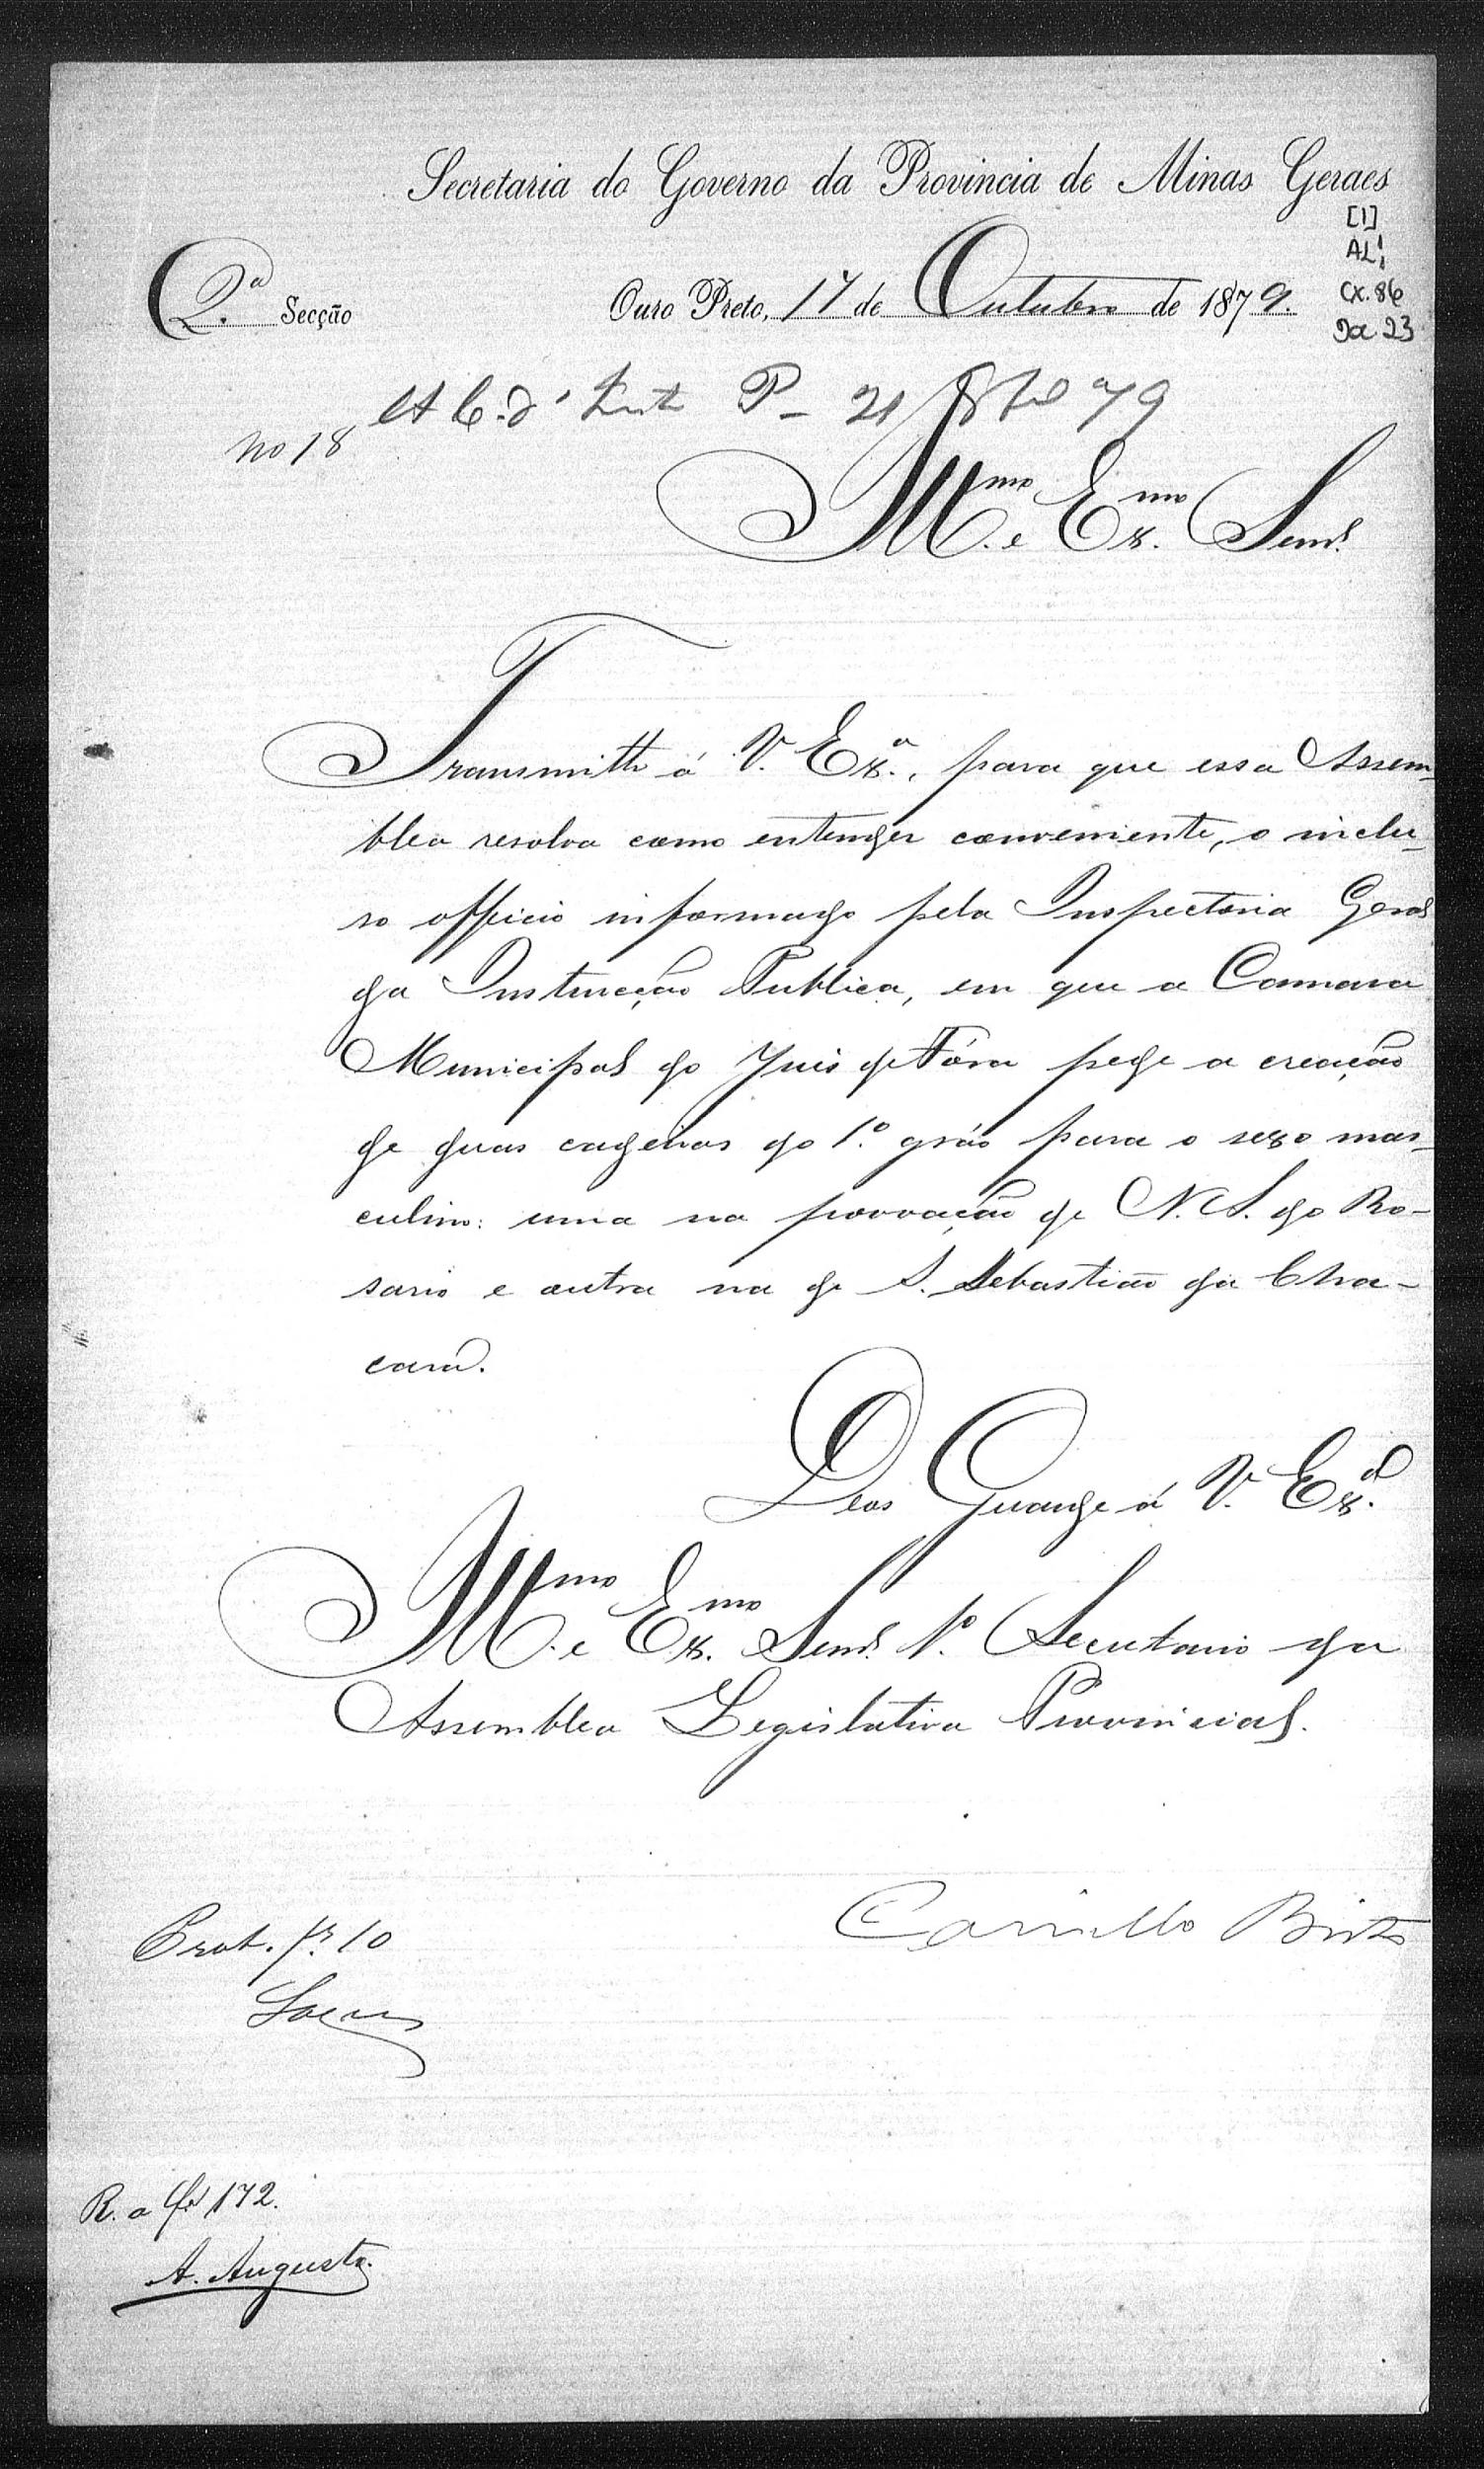 Secretaria do Governo da Provincia de Minas Geraes
[1]
AL1
2.ª Secção Ouro Preto, 17 de Outubro de 1879.
CX. 86
A C. d' P 21 79
No 18
Ill.mo e Ex.mo Senr.
Transmitto á V. Ex.ª, para que essa Assem-
blea resolva como entender conveniente, o inclu-
so officio informado pela Inspectoria Geral
da Instrucção Publica, em que a Camara
Municipal do Juis de Fóra pede a creação
de duas cadeiras do 1.º gráo para o sexo mas-
culino: uma na povoação de N. S. do Ro-
sario e outra na de S. Sebastião da Cha-
cara.
Deos Guarde á V. Ex.ª
Ill.mo e Ex.mo Senr. 1.º Secretario da
Assemblea Legislativa Provincial.
Camillo Brito
Prot. f. 10
R. a fl 172.
A. Augusto.